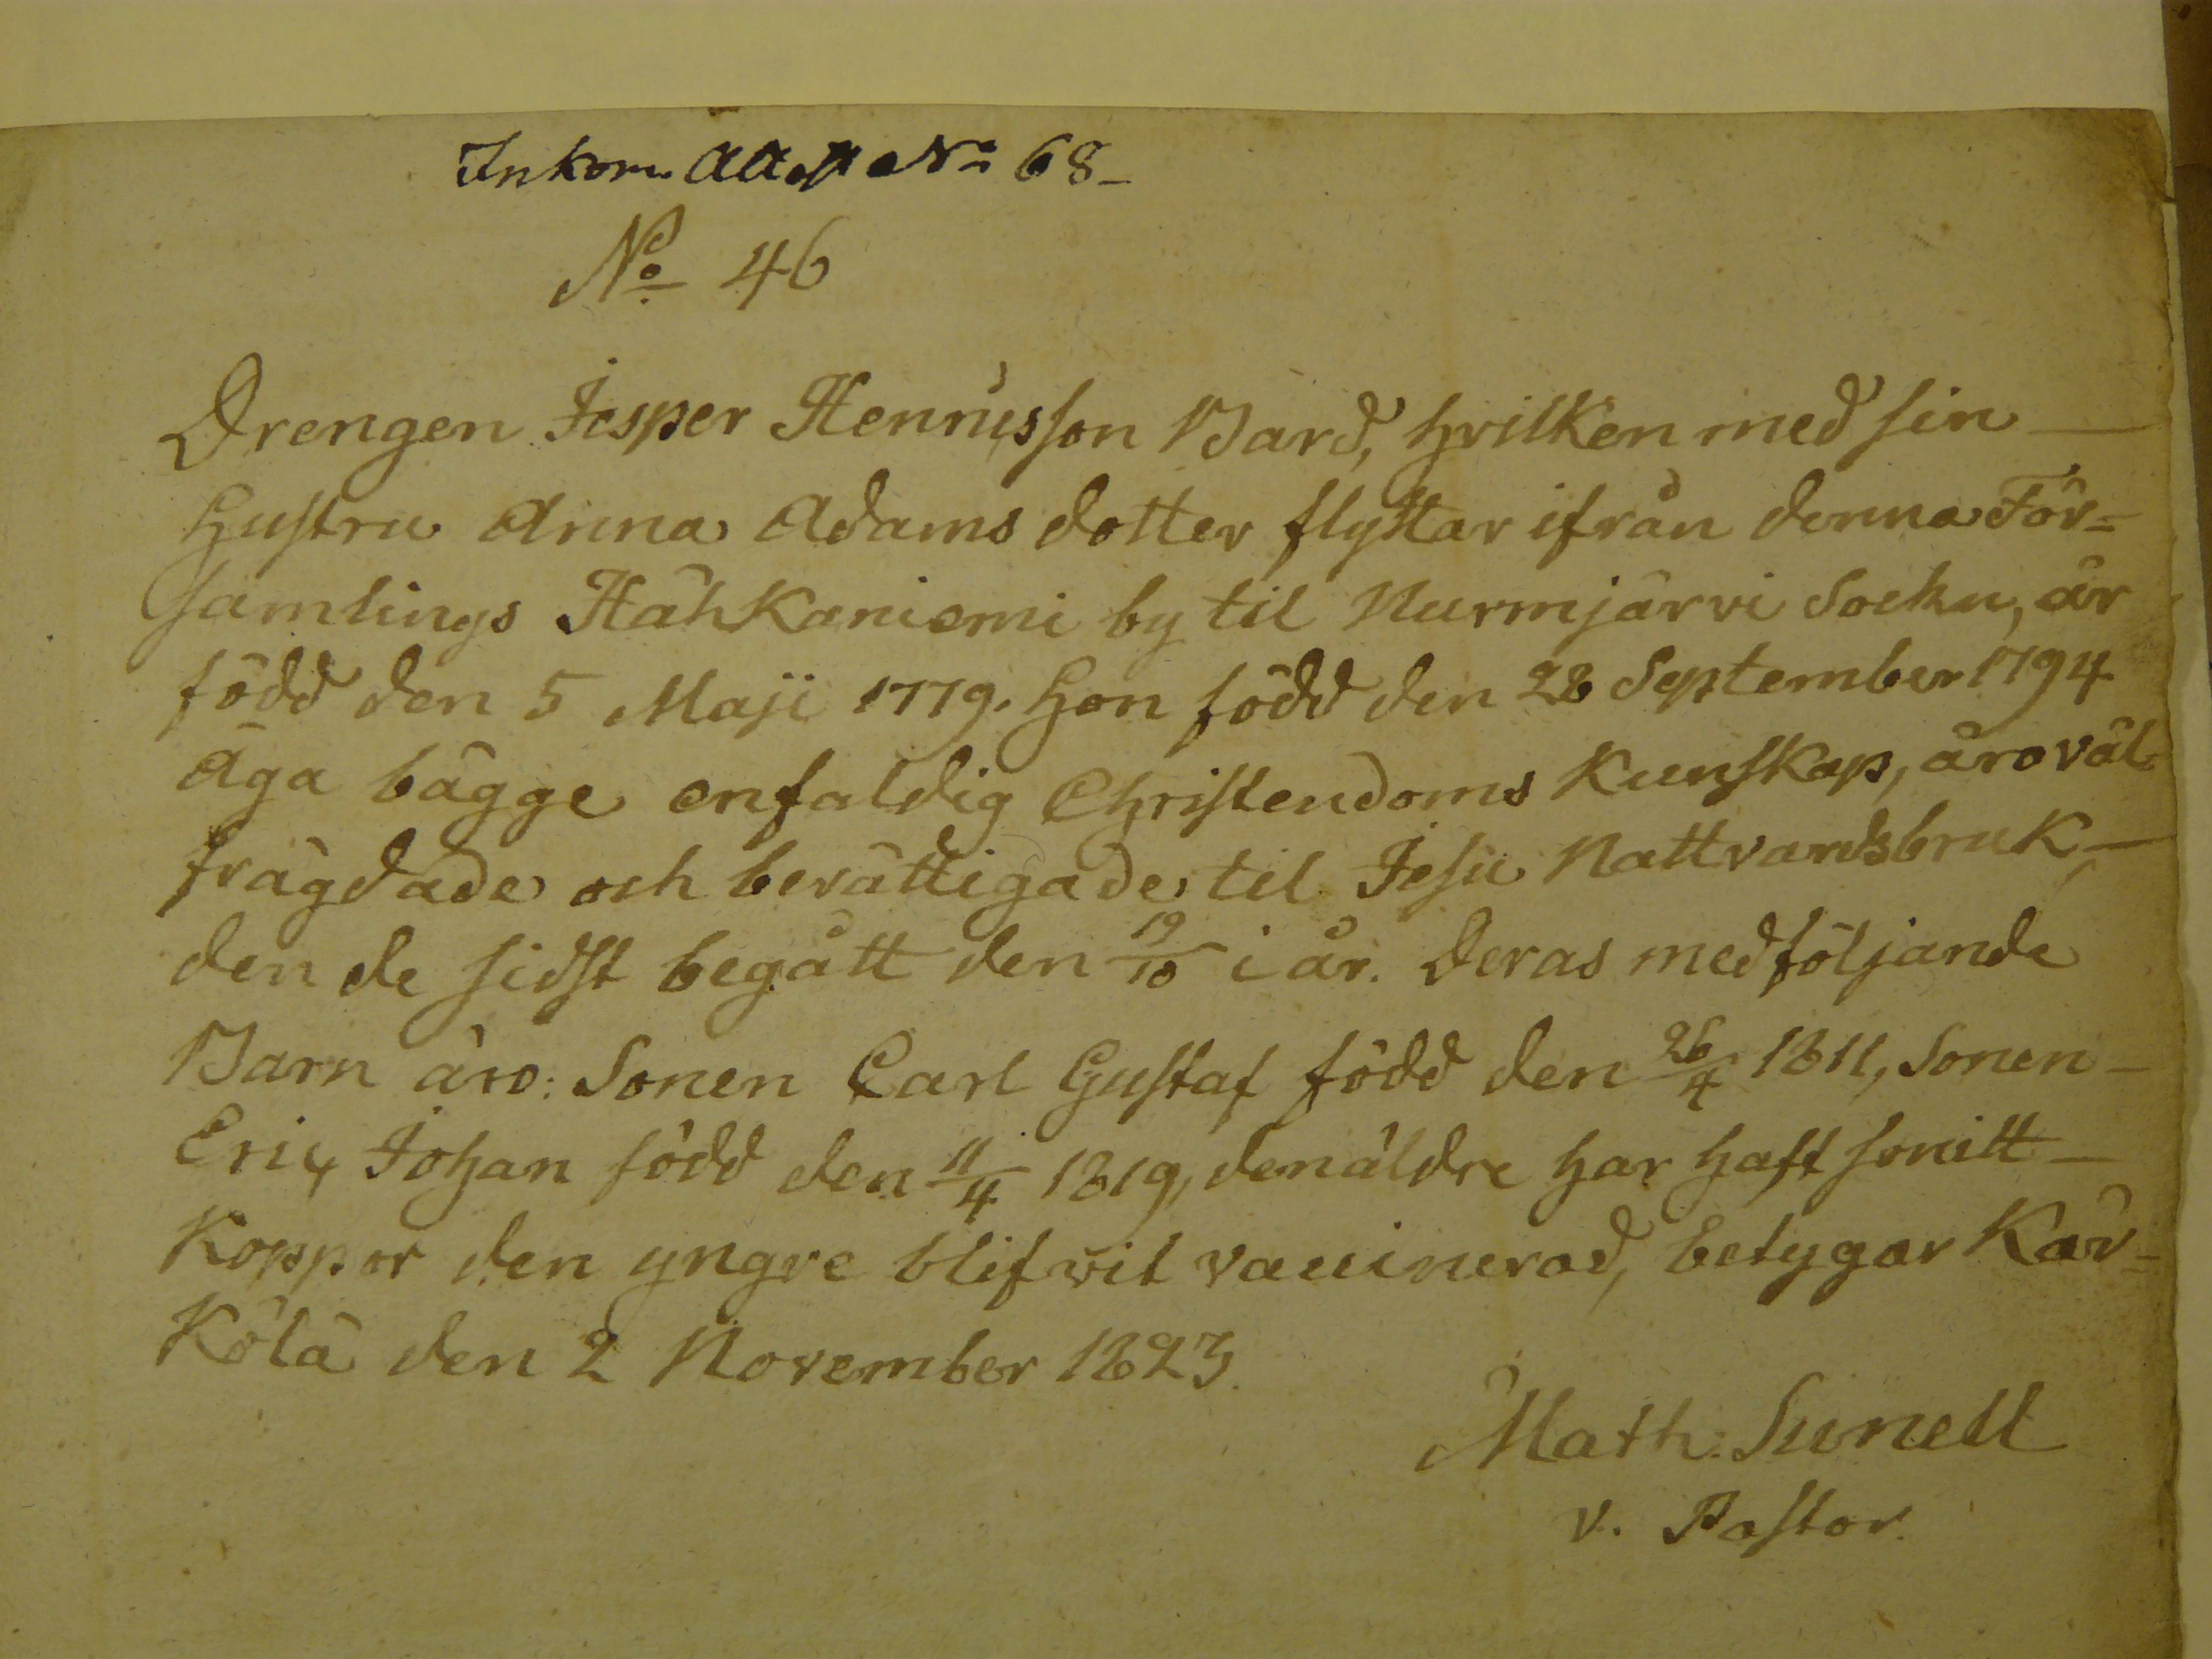 Inkom. Attest No 68_
No 46
Drengen Jesper Henricsson Bard, hvilken med sin
hustru Anna Adams dotter flyttar ifrån denna För=
samlings Hähkäniemi by til Nurmjärvi Sockn, är
född den 5 Maji 1779. hon född den 28 September 1794
Äga bägge enfaldig Christendoms Kunskap, äro väl=
frägdade och berättigade til Jesu Nattvardsbruk,
den de sidst begått den 19/10 i år. Deras medföljande
Barn äro: Sonen Carl Gustaf född den 26/4 1811, Sonen
Eric Johan född den 11/4 1819, den äldre har haft
Koppor den yngre blifvit vaccinerad, betygar Kär=
Kölä den 2 November 1823.
Math. Sunell
v. Pastor.